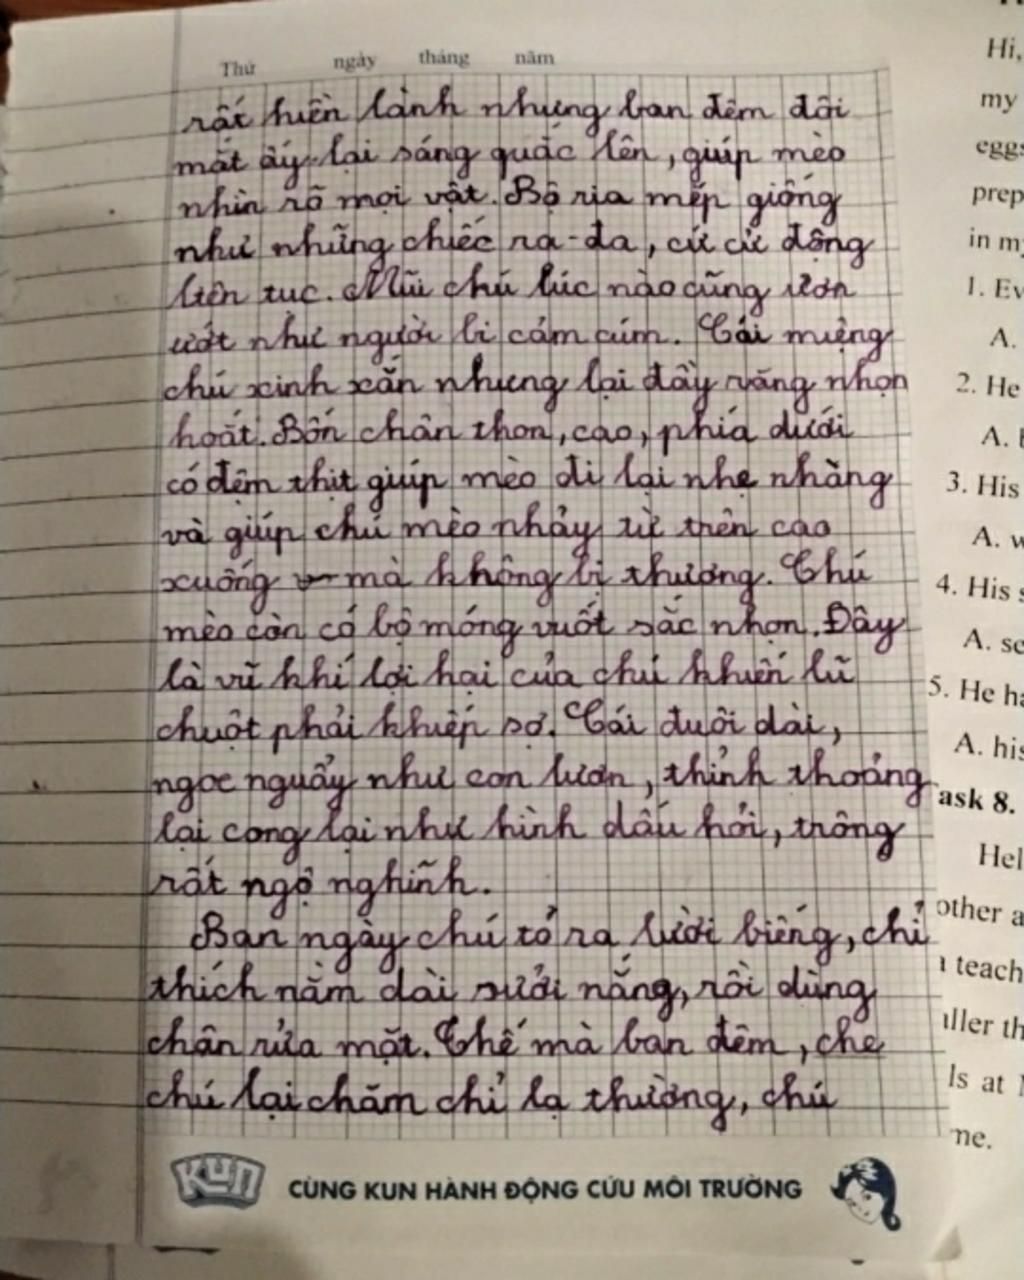 Thứ ngày tháng năm
rất hiền lành nhưng ban đêm đôi
mắt ấy lại sáng quắc lên, giúp mèo
nhìn rõ mọi vật. Bộ ria mép giống
như những chiếc ra-đa, cứ cử động
liên tục. Mũi chú lúc nào cũng ươn
ướt như người bị cảm cúm. Cái miệng
chú xinh xắn nhưng lại đầy răng nhọn
hoắt. Bốn chân thon, cao, phía dưới
có đệm thịt giúp mèo đi lại nhẹ nhàng
và giúp chú mèo nhảy từ trên cao
xuống mà không bị thương. Chú
mèo còn có bộ móng vuốt sắc nhọn. Đây
là vũ khí lợi hại của chú khiến lũ
chuột phải khiếp sợ. Cái đuôi dài,
ngoe nguẩy như con lươn, thỉnh thoảng
lại cong lại như hình dấu hỏi, trông
rất ngộ nghĩnh.
Ban ngày chú tỏ ra lười biếng, chỉ
thích nằm dài sưởi nắng, rồi dùng
chân rửa mặt. Thế mà ban đêm, che
chú lại chăm chỉ lạ thường, chú
KUN CÙNG KUN HÀNH ĐỘNG CỨU MÔI TRƯỜNG
Hi,
my
eggs
prep
in my
1. Ev
A.
2. He
A.
3. His
A. w
4. His s
A. sc
5. He ha
A. his
ask 8.
Hel
other a
teach
aller th
ls at
me.